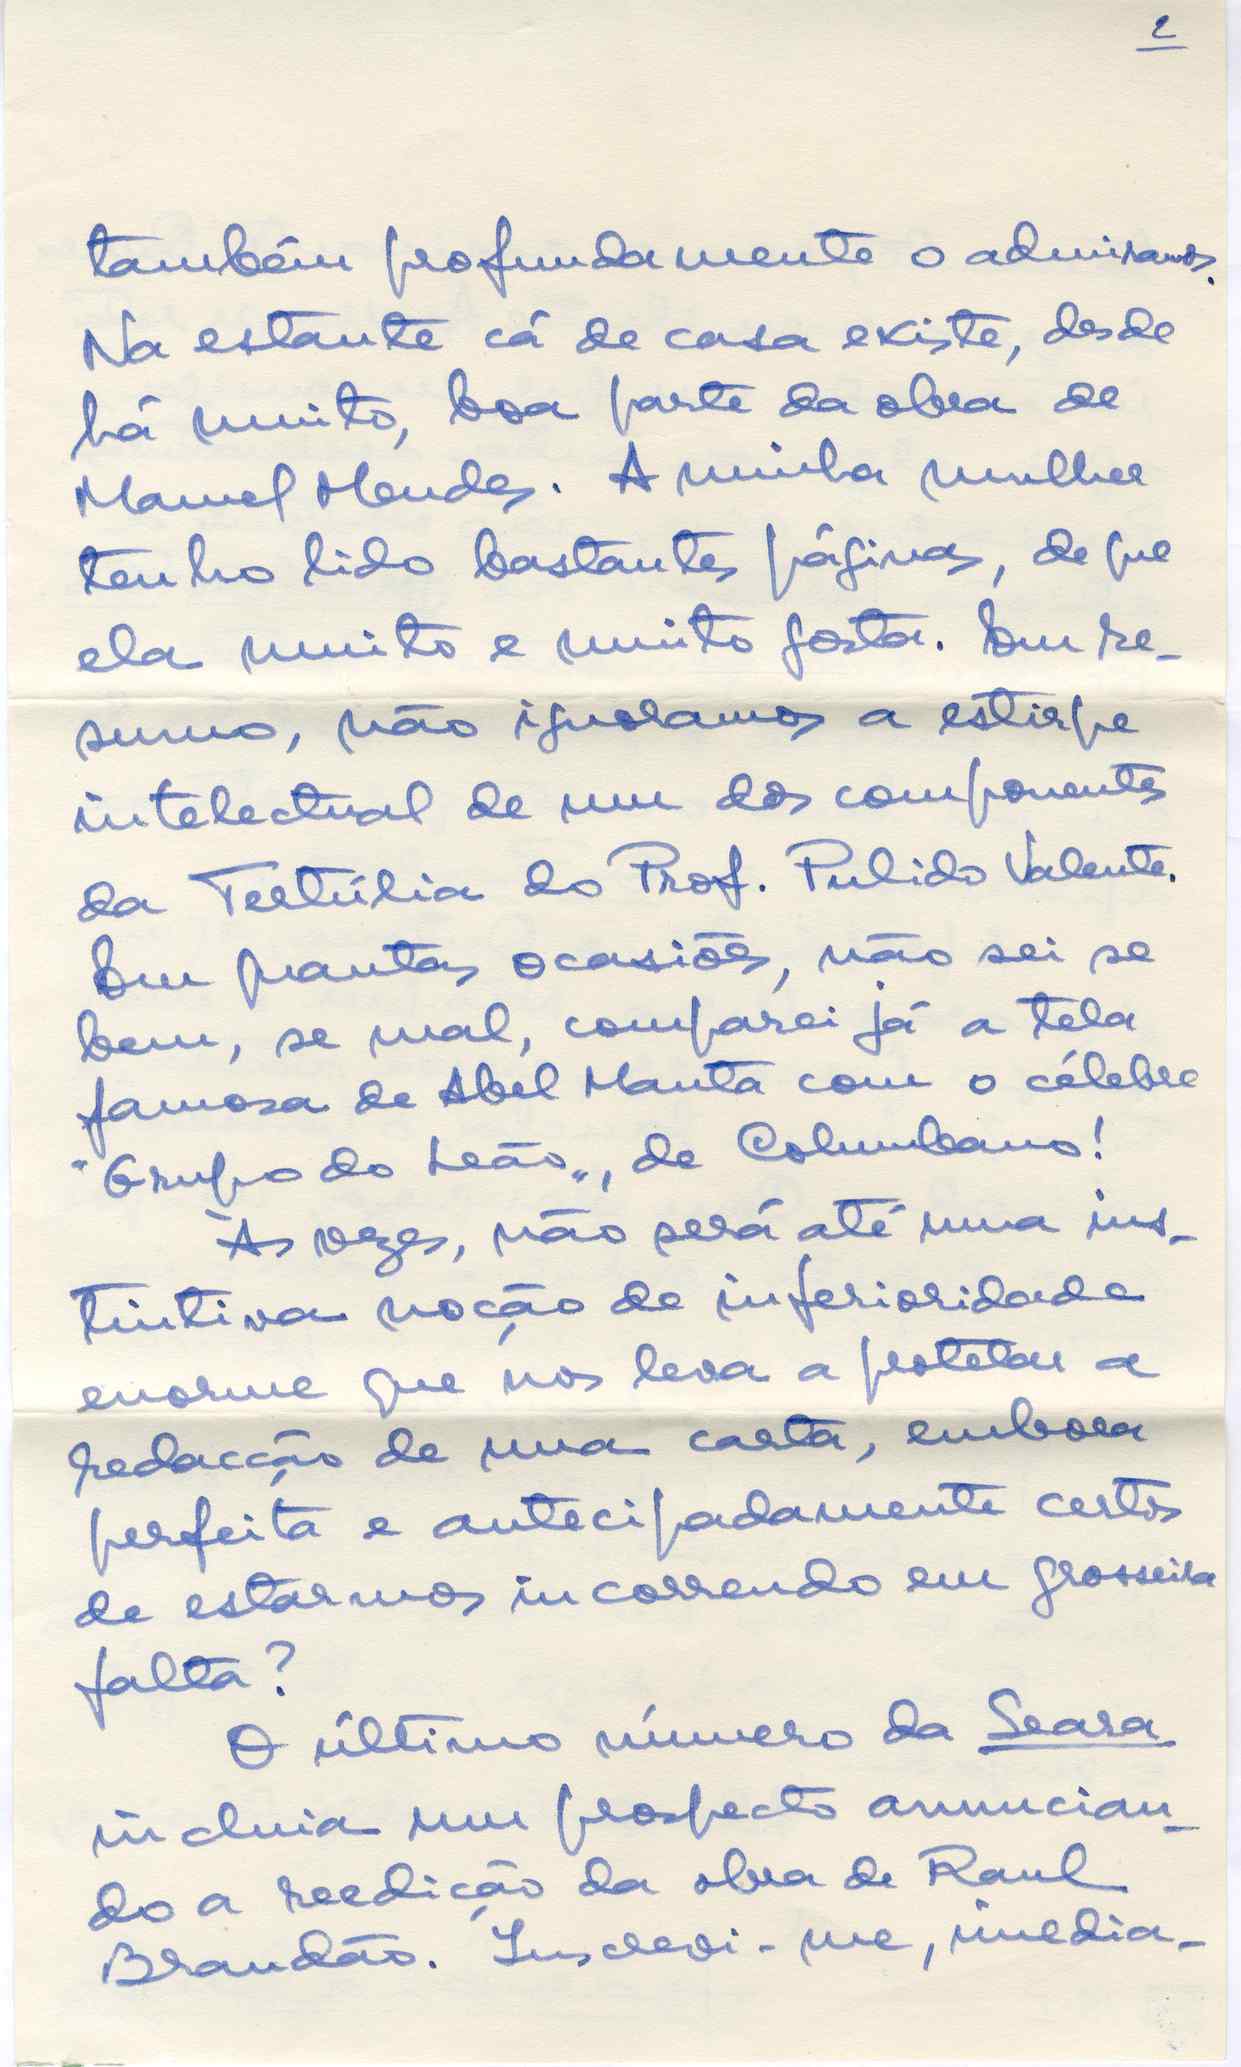 2
também profundamente o admiramos.
Na estante cá de casa existe, desde
há muito, boa parte da obra de
Manuel Mendes. A minha mulher
tenho lido bastantes páginas, de que
ela muito e muito gosta. Em re-
sumo, não ignoramos a estirpe
intelectual de um dos componentes
da Tertúlia do Prof. Pulido Valente.
Em quantas ocasiões, não sei se
bem, se mal, comparei já a tela
famosa de Abel Manta com o célebre
"Grupo do Leão", de Columbano!
Às vezes, não será até uma ins-
tintiva noção de inferioridade
enorme que nos leva a protelar a
redacção de uma carta, embora
perfeita e antecipadamente certos
de estarmos incorrendo em grosseira
falta?
O último número da Seara
incluia um prospecto anuncian-
do a reedição da obra de Raul
Brandão. Inscrevi-me, imedia-